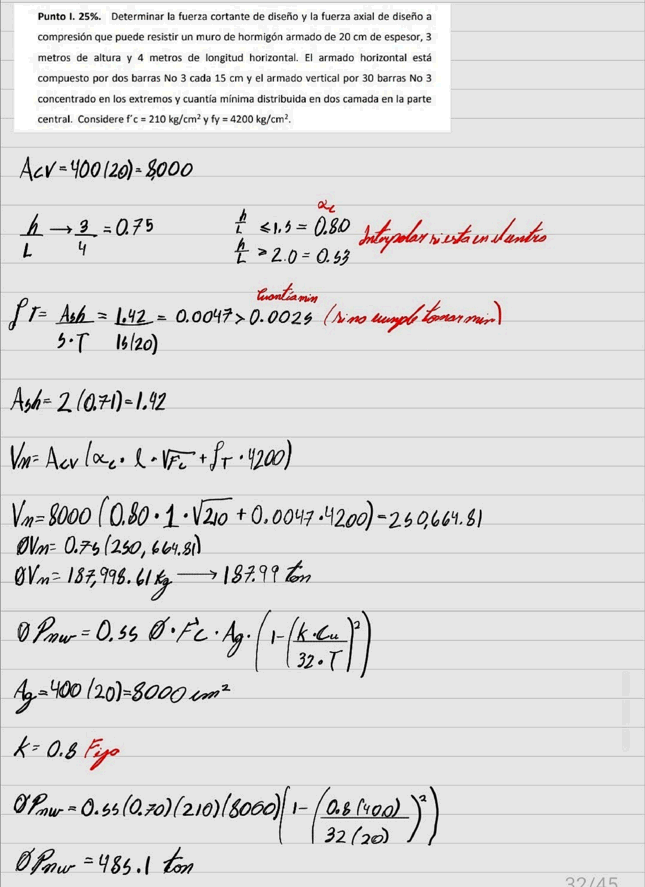 Punto I. 25%. Determinar la fuerza cortante de diseño y la fuerza axial de diseño a
compresión que puede resistir un muro de hormigón armado de 20 cm de espesor, 3
metros de altura y 4 metros de longitud horizontal. El armado horizontal está
compuesto por dos barras No 3 cada 15 cm y el armado vertical por 30 barras No 3
concentrado en los extremos y cuantía mínima distribuida en dos camada en la parte
central. Considere f'c = 210 kg/cm² y fy = 4200 kg/cm².
Acv = 400(20) = 8,000
αc
h/L → 3/4 = 0.75
h/L ≤ 1.5 = 0.80
h/L > 2.0 = 0.53
Interpolar si esta en el entro
Cuantía min
ρT = Ash/S·T = 1.42/15(20) = 0.0047 > 0.0025 (si no cumple tomar min)
Ash = 2(0.71) = 1.42
Vn = Acv (αc · l · √Fc + ρT · 4200)
Vn = 8000 (0.80 · 1 · √210 + 0.0047 · 4200) = 250,664.81
ØVn = 0.75 (250,664.81)
ØVn = 187,998.61 kg → 187.99 ton
Ø Pnw = 0.55 Ø · F'c · Ag · (1 - (k · Lu / 32 · T)²)
Ag = 400 (20) = 8000 cm²
K = 0.8 Fijo
ØPnw = 0.55 (0.70) (210) (8000) (1 - (0.8 (400) / 32 (20))²)
ØPnw = 485.1 ton
32/45